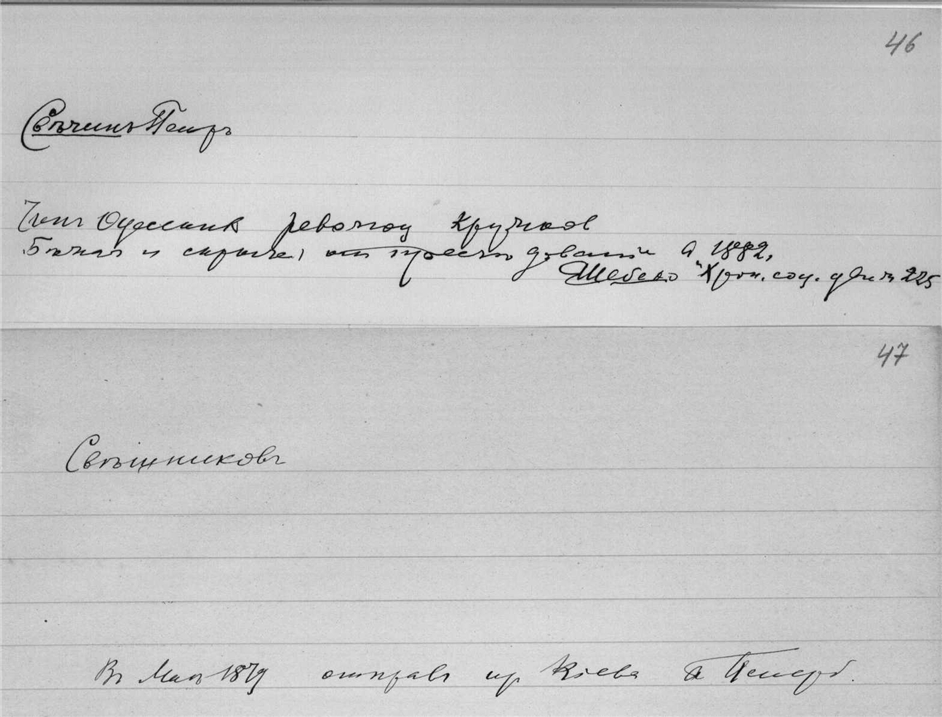 46
Свѣчинъ Петръ
Член Одесских революц кружков
Бежал и скрылся от преследований в 1882,
Шебеко "Хрон. соц. движ 225
47
Свѣшниковъ
Въ Маѣ 1879 отправ из Кіева в Петерб.